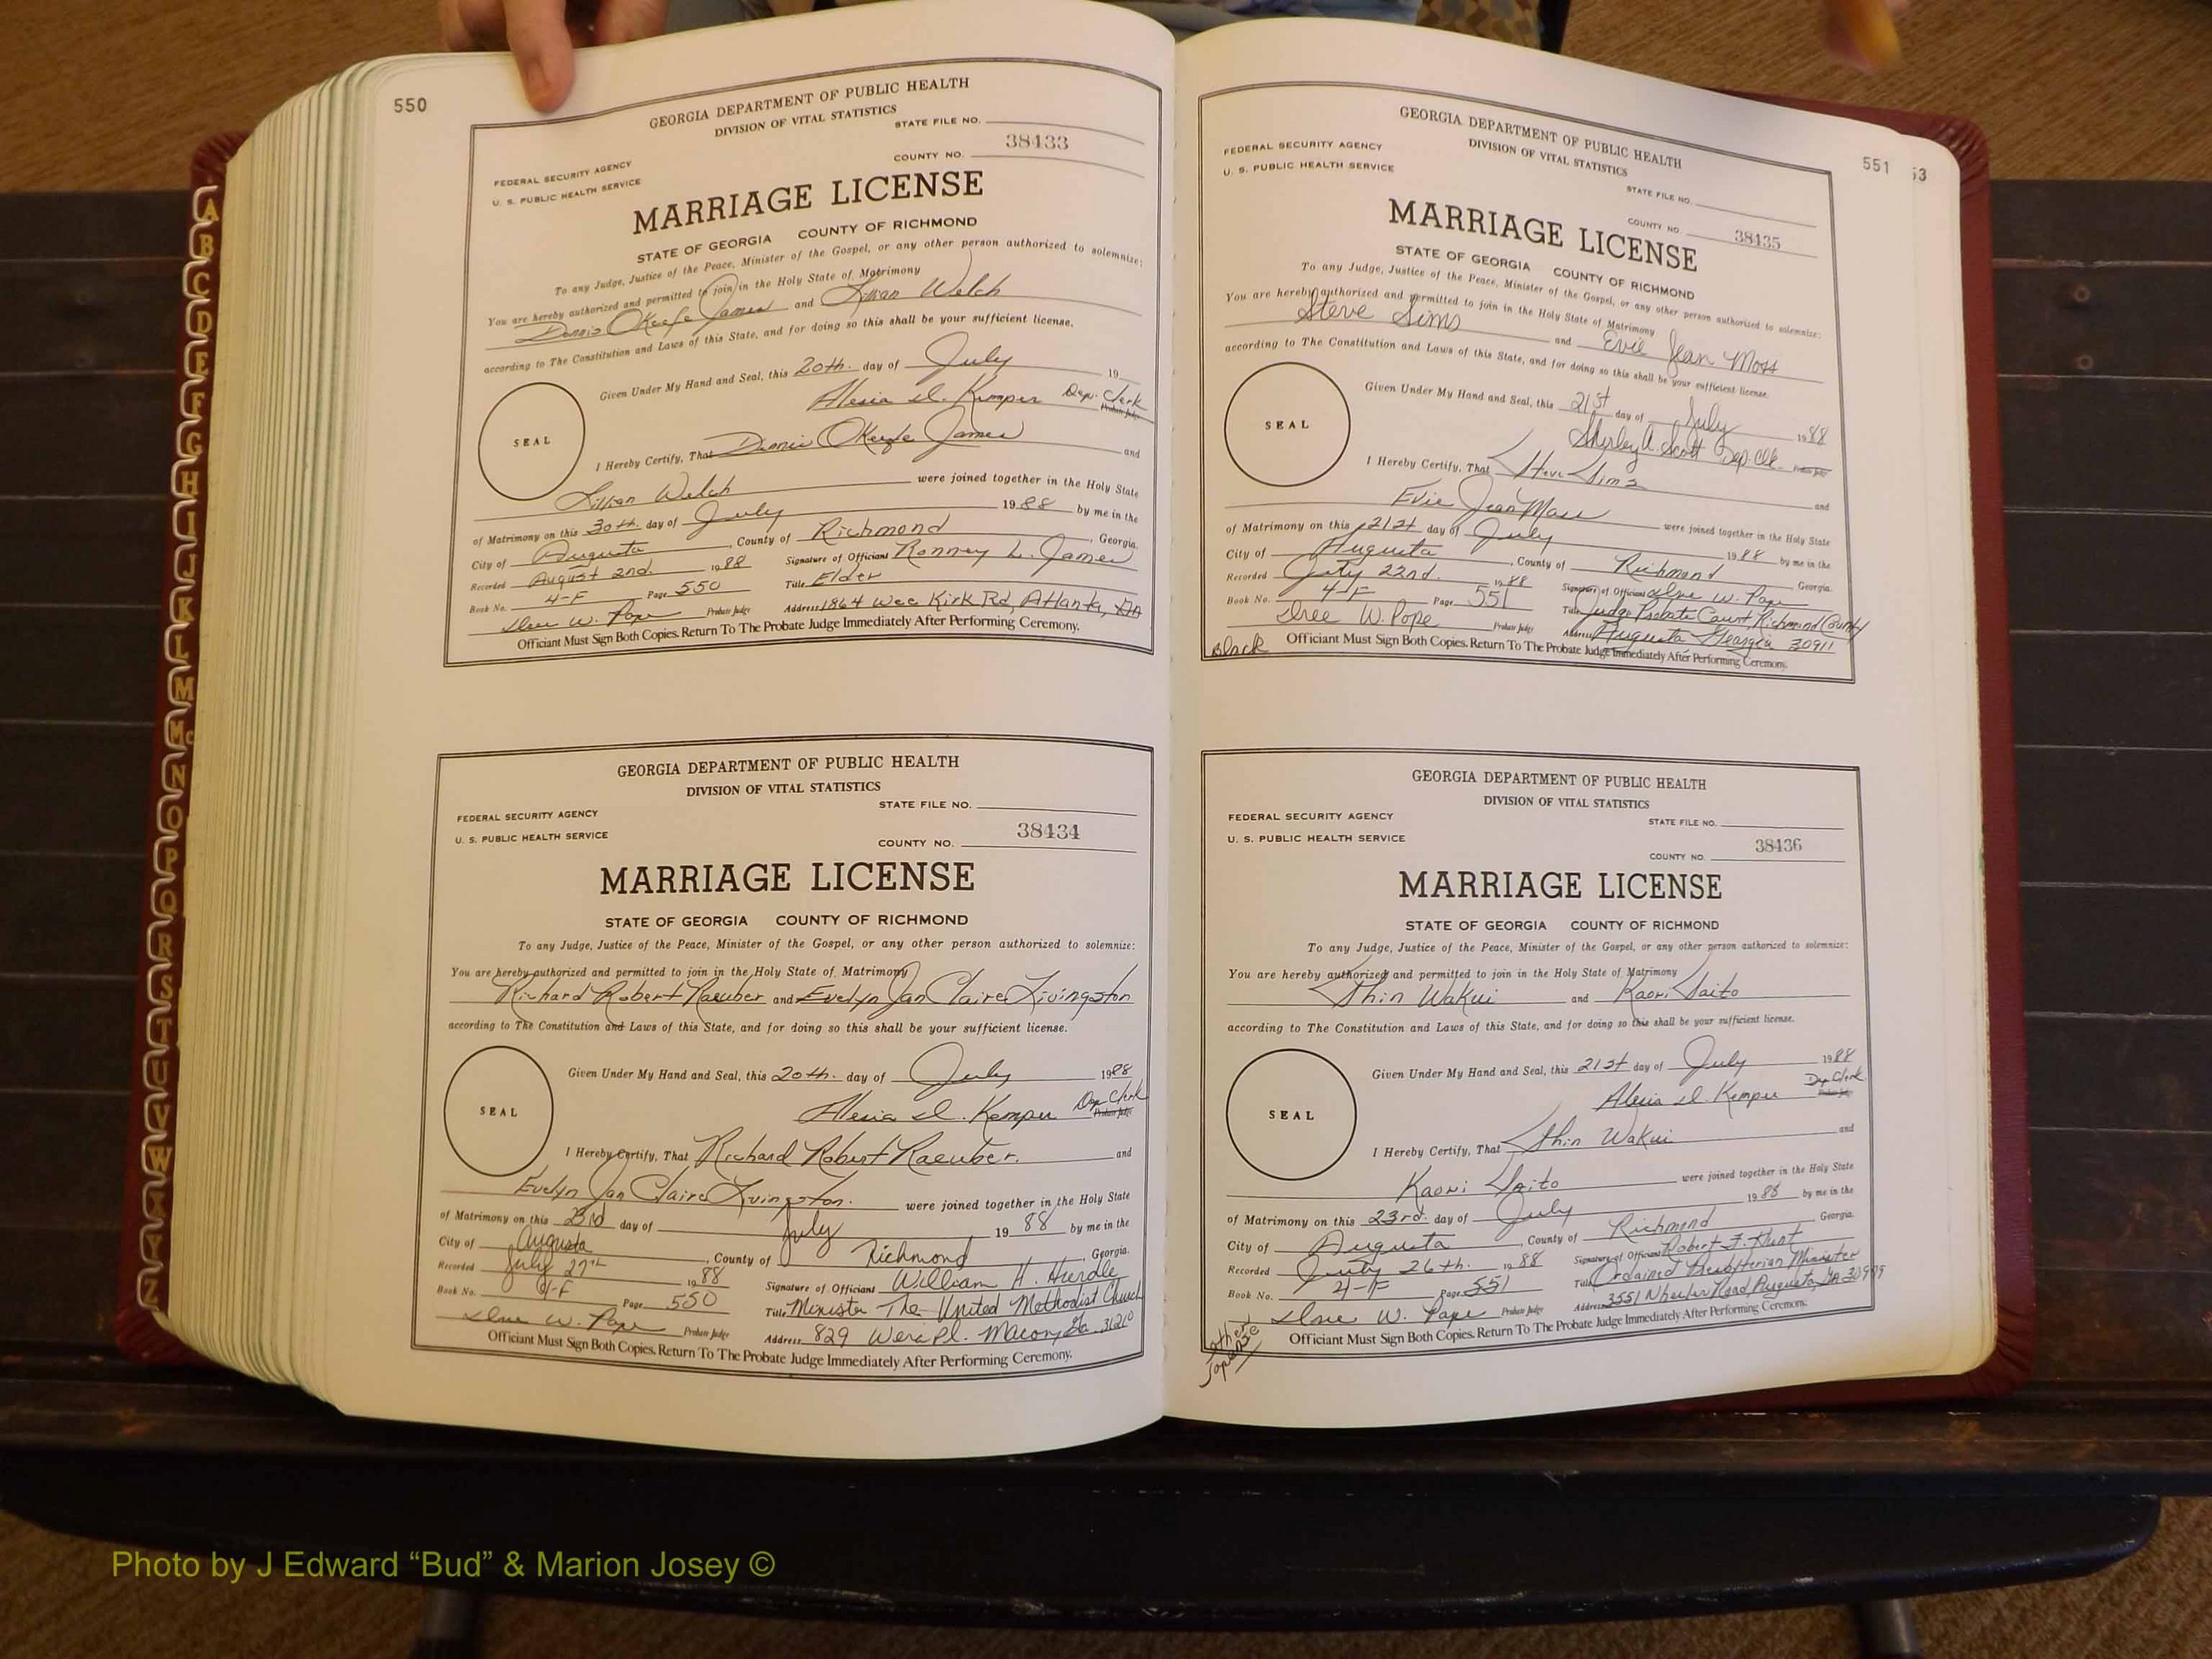 550
GEORGIA DEPARTMENT OF PUBLIC HEALTH
DIVISION OF VITAL STATISTICS
STATE FILE NO.
FEDERAL SECURITY AGENCY
U. S. PUBLIC HEALTH SERVICE
COUNTY NO. 38433
MARRIAGE LICENSE
STATE OF GEORGIA COUNTY OF RICHMOND
To any Judge, Justice of the Peace, Minister of the Gospel, or any other person authorized to solemnize:
You are hereby authorized and permitted to join in the Holy State of Matrimony
Dennis OKeefe James and Lillian Welch
according to The Constitution and Laws of this State, and for doing so this shall be your sufficient license.
Given Under My Hand and Seal, this 20th. day of July 19
Alesia D. Kemper Dep. Clerk
Probate Judge
SEAL
I Hereby Certify, That Dennis OKeefe James and
Lillian Welch were joined together in the Holy State
of Matrimony on this 30th. day of July 1988 by me in the
City of Augusta, County of Richmond, Georgia.
Recorded August 2nd. 1988 Signature of Officiant Ronney L. James
Book No. 4-F Page 550 Title Elder
Probate Judge Address 1864 Wee Kirk Rd, Atlanta, GA
Officiant Must Sign Both Copies. Return To The Probate Judge Immediately After Performing Ceremony.
GEORGIA DEPARTMENT OF PUBLIC HEALTH
DIVISION OF VITAL STATISTICS
STATE FILE NO.
FEDERAL SECURITY AGENCY
U. S. PUBLIC HEALTH SERVICE
COUNTY NO. 38434
MARRIAGE LICENSE
STATE OF GEORGIA COUNTY OF RICHMOND
To any Judge, Justice of the Peace, Minister of the Gospel, or any other person authorized to solemnize:
You are hereby authorized and permitted to join in the Holy State of Matrimony
Richard Robert Raeuber and Evelyn Jan Claire Livingston
according to The Constitution and Laws of this State, and for doing so this shall be your sufficient license.
Given Under My Hand and Seal, this 20th. day of July 1988
Alesia D. Kemper Dep Clerk
Probate Judge
SEAL
I Hereby Certify, That Richard Robert Raeuber. and
Evelyn Jan Claire Livingston. were joined together in the Holy State
of Matrimony on this 23rd day of July 1988 by me in the
City of Augusta, County of Richmond, Georgia.
Recorded July 27th 1988 Signature of Officiant William H. Hurdle
Book No. 4-F Page 550 Title Minister The United Methodist Church
Probate Judge Address 829 Wera Pl. Macon, Ga. 31210
Officiant Must Sign Both Copies. Return To The Probate Judge Immediately After Performing Ceremony.
551 53
GEORGIA DEPARTMENT OF PUBLIC HEALTH
DIVISION OF VITAL STATISTICS
FEDERAL SECURITY AGENCY
U. S. PUBLIC HEALTH SERVICE
STATE FILE NO.
COUNTY NO. 38435
MARRIAGE LICENSE
STATE OF GEORGIA COUNTY OF RICHMOND
To any Judge, Justice of the Peace, Minister of the Gospel, or any other person authorized to solemnize:
You are hereby authorized and permitted to join in the Holy State of Matrimony
Steve Sims and Evie Jean Moss
according to The Constitution and Laws of this State, and for doing so this shall be your sufficient license.
Given Under My Hand and Seal, this 21st day of July 1988
Shirley A. Scott Dep. Clk.
Probate Judge
SEAL
I Hereby Certify, That Steve Sims and
Evie Jean Moss were joined together in the Holy State
of Matrimony on this 21st day of July 1988 by me in the
City of Augusta, County of Richmond Georgia.
Recorded July 22nd. 1988 Signature of Officiant W. Pope
Book No. 4-F Page 551 Title Judge Probate Court, Richmond County
W. Pope Probate Judge Address Augusta Georgia 30911
Black Officiant Must Sign Both Copies. Return To The Probate Judge Immediately After Performing Ceremony.
GEORGIA DEPARTMENT OF PUBLIC HEALTH
DIVISION OF VITAL STATISTICS
FEDERAL SECURITY AGENCY
STATE FILE NO.
U. S. PUBLIC HEALTH SERVICE
COUNTY NO. 38436
MARRIAGE LICENSE
STATE OF GEORGIA COUNTY OF RICHMOND
To any Judge, Justice of the Peace, Minister of the Gospel, or any other person authorized to solemnize:
You are hereby authorized and permitted to join in the Holy State of Matrimony
Shin Wakui and Kaori Saito
according to The Constitution and Laws of this State, and for doing so this shall be your sufficient license.
Given Under My Hand and Seal, this 21st day of July 1988
Alesia D. Kemper Dep Clerk
Probate Judge
SEAL
I Hereby Certify, That Shin Wakui and
Kaori Saito were joined together in the Holy State
of Matrimony on this 23rd. day of July 1988 by me in the
City of Augusta, County of Richmond Georgia.
Recorded July 26th. 1988 Signature of Officiant Robert F.
Book No. 4-F Page 551 Title Ordained Presbyterian Minister
W. Pope Probate Judge Address 3551 Wheeler Road, Augusta, GA 30909
Officiant Must Sign Both Copies. Return To The Probate Judge Immediately After Performing Ceremony.
other
Japanese
A
B
C
D
E
F
G
H
I
J
K
L
M
Mc
N
O
P
Q
R
S
T
U
V
W
X
Y
Z
Photo by J Edward “Bud” & Marion Josey ©